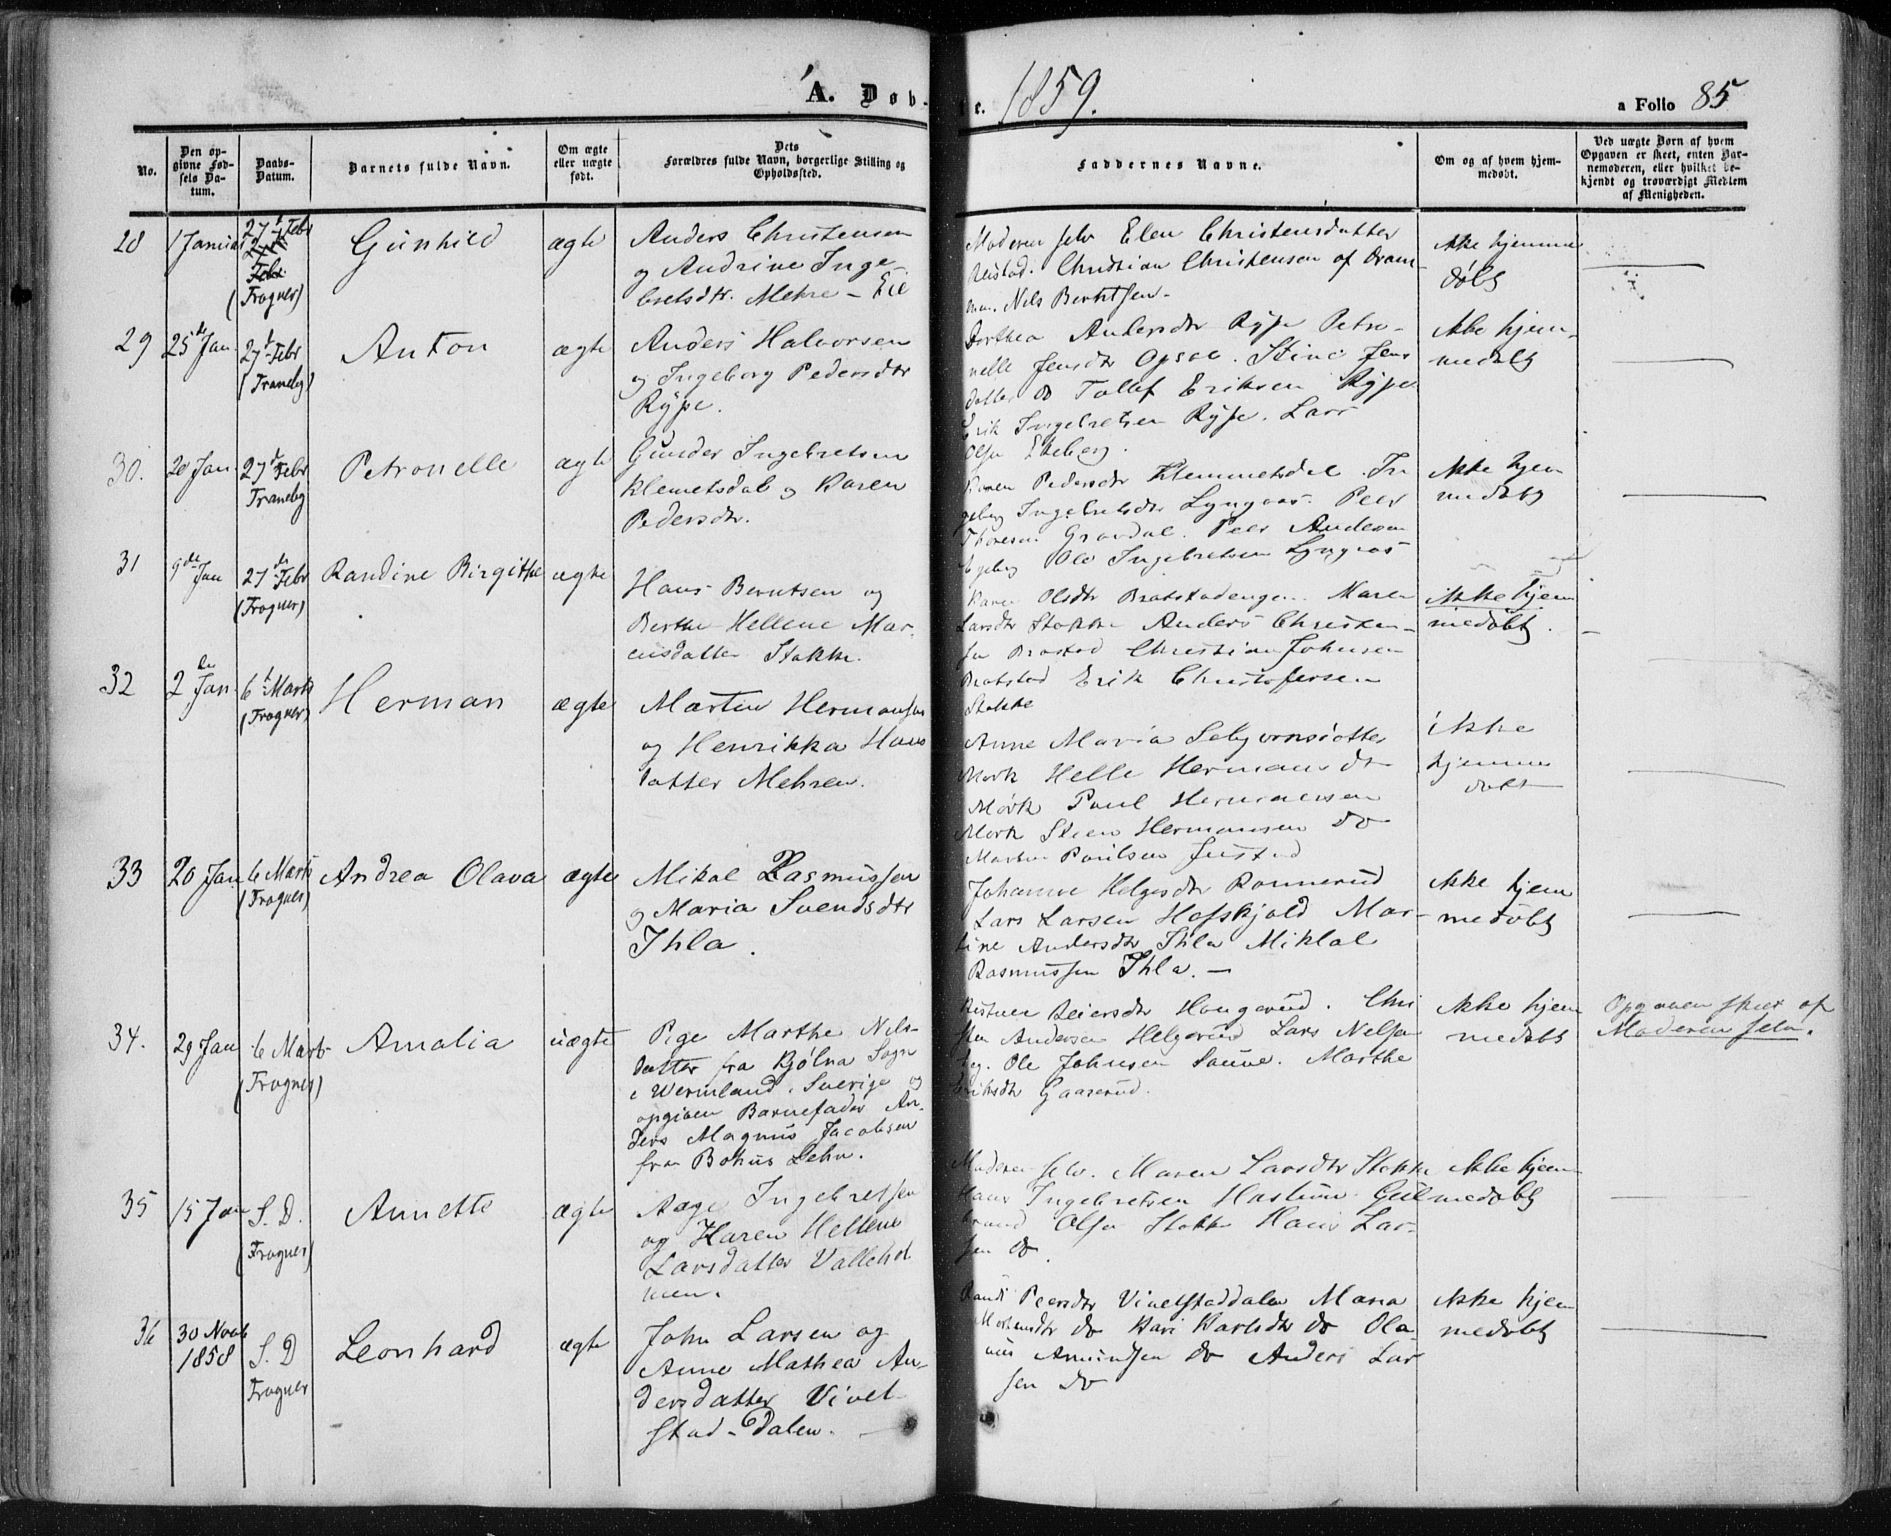 A. Døb-
te. 1859.
a Folio 85
No.
Den op-
givne Fød-
sels Da-
tum.
Daabs-
Datum.
Barnets fulde Navn.
Om ægte
eller uægte
født.
Dets
Forældres fulde Navn, borgerlige Stilling og
Opholdssted.
Faddernes Navne.
Om og af hvem hjem-
medøbt.
Ved uægte Børn af hvem
Opgaven er skeet, enten Bar-
nemoderen, eller hvilket be-
kjendt og troværdigt Medlem
af Menigheden.
28
1 Januar
27 Febr
Febr
(Frogner)
Gunhild
ægte
Anders Christensen
og Andrine Inge-
bretsdtr. Mehre - Eie
Moderen selv Elen Christensdatter
Christian Christensen af Dram-
men. Nils Berntsen -
Ikke hjemme
døbt
29
25de Jan.
27 Febr
(Traneby)
Anton
ægte
Anders Halvorsen
og Ingeborg Pedersdtr
Rype.
Dorthea Andersdtr Rype Petro-
nelle Jensdtr Opsal. Stine Jens
datter do Tollef Eriksen Rype
Erik Ingebretsen Rype. Lars
Olsen Ekeberg.
Ikke hjem-
medøbt
30.
20 Jan.
27 Febr
Traneby
Petronelle
ægte
Gunder Ingebretsen
Klemetsdal og Karen
Pedersdtr.
Karen Pedersdtr Klemmetsdal. In
geborg Ingebretsdtr Lyngaas. Peer
Thoresen Gravdal. Peer Andersen
Ole Ingebretsen Lyngaas
Ikke hjem
medøbt
31
9de Jan
27de Febr
(Frogner)
Randine Birgitthe
ægte
Hans Berntsen og
Berthe Hellene Mar-
ensdatter Stokke.
Karen Olsdtr Bratstadengen. Maren
Larsdtr Stokke Anders Christen-
sen Brastad Christian Johnsen
Bratstad Erik Christofersen
Stokke
ikke hjem
medøbt.
32
2de Jan
6 Marts
(Frogner)
Herman
ægte
Martin Hermansen
og Henrikka Hans
datter Mehren.
Anne Maria
Mørk Helle Hermansdt
Mørk Paul Hermansen
Mørk Steen Hermansen do
Martin Paulsen
ikke
hjemme
døbt
33
20 Jan
6 Marts
(Frogner)
Andrea Olava
ægte
Mikal Rasmussen
og Maria Svendsdtr
Ihla.
Johanne Helgesdtr Ronnerud
Lars Larsen Hofskjold Mar-
tine Andersdtr Ihla Miklal
Rasmussen Ihla. -
Ikke hjem
medøbt
34.
29 Jan
6 Marts
(Frogner)
Amalia
uægte
Pige Marthe Nels-
datter fra Kjølna Sogn
i Wermland, Sverige og
opgiven Barnefader An-
ders Magnus Jacobsen
fra Bohus Lehn.
Reiersdtr Haugerud. Chri
Andersen Helgerud Lars Nelsen
Ole Johnsen Sanne. Marthe
Eriksdtr Gaaserud.
Ikke hjem
medøbt
Opgaven skeer af
Moderen selv.
35
15 Jan
S. D.
(Frogner)
Annette
ægte
Aage Ingebretsen
og Karen Hellene
Larsdatter Vallehol
men.
Moderen selv. Maren Larsdtr Stokke
Hans Ingebretsen Haslum. Gul
brand Olsen Stokke Hans Lar-
sen do
Ikke hjem
medøbt
36
30 Novb
1858
S. D
Frogner
Leonhard
ægte
John Larsen og
Anne Mathea An-
dersdatter Vivel-
stad-Dalen.
Randi Peersdtr Vivelstaddalen Maria
do Kari Karlsdtr do Ola-
us Amundsen do Anders Lar
sen do
Ikke hjem
medøbt